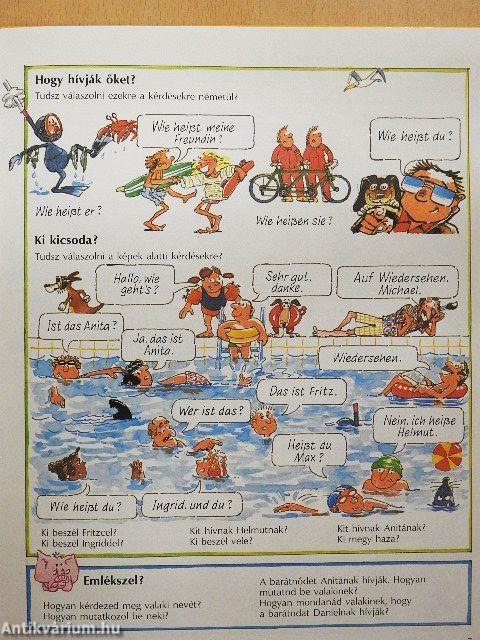 Hogy hívják őket?
Tudsz válaszolni ezekre a kérdésekre németül?
Wie heißt meine
Freundin?
Wie heißt du?
Wie heißt er?
Wie heißen sie?
Ki kicsoda?
Tudsz válaszolni a képek alatti kérdésekre?
Hallo, wie
geht's?
Sehr gut,
danke.
Auf Wiedersehen,
Michael.
Ist das Anita?
Ja, das ist
Anita.
Wiedersehen.
Das ist Fritz.
Wer ist das?
Nein, ich heiße
Helmut.
Heißt du
Max?
Wie heißt du?
Ingrid, und du?
Ki beszél Fritzcel?
Ki beszél Ingriddel?
Kit hívnak Helmutnak?
Ki beszél vele?
Kit hívnak Anitának?
Ki megy haza?
Emlékszel?
Hogyan kérdezed meg valaki nevét?
Hogyan mutatkozol be neki?
A barátnődet Anitának hívják. Hogyan
mutatod be valakinek?
Hogyan mondanád valakinek, hogy
a barátodat Danielnak hívják?
Antikvarium.hu